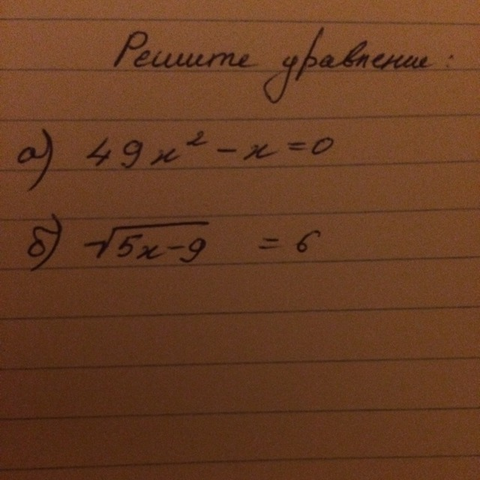 Решите уравнение:
а) 49x² - x = 0
б) √5x-9 = 6